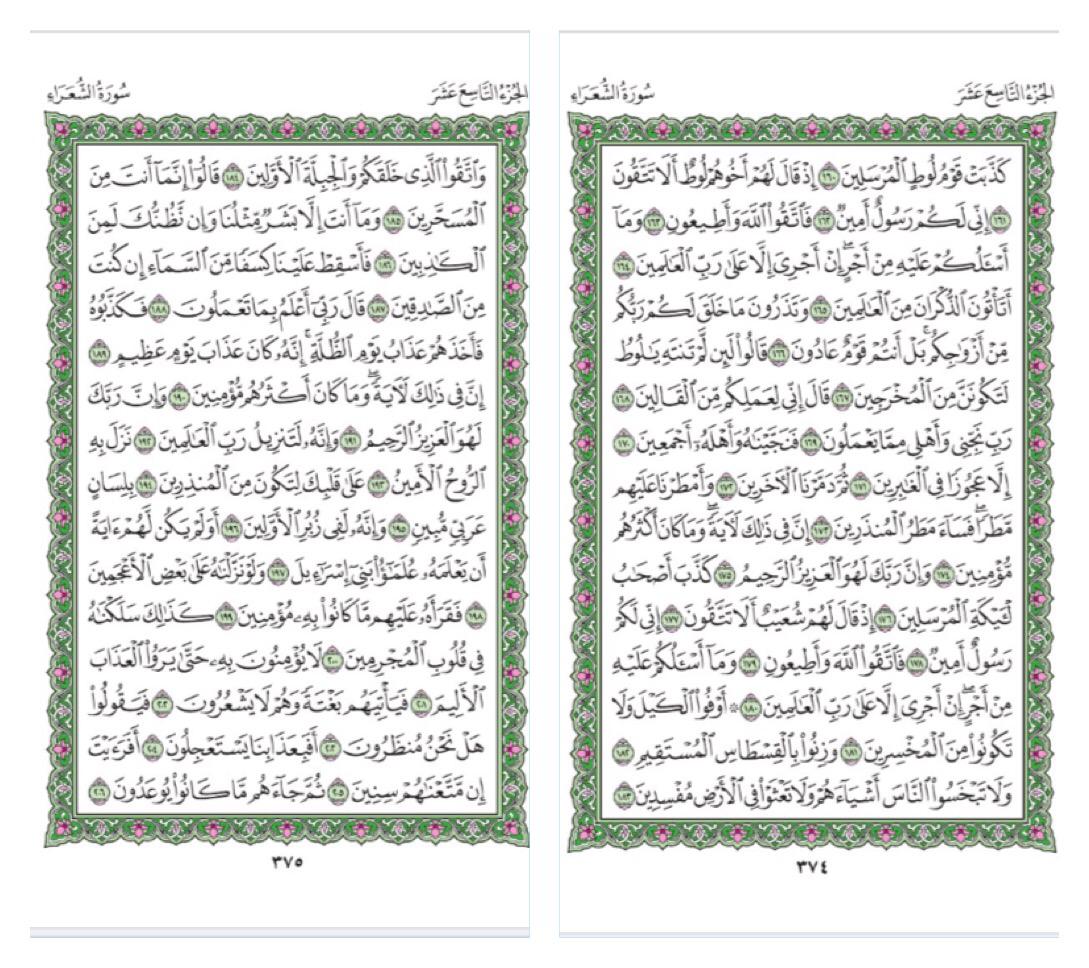 الجُزْءُ التَّاسِعَ عَشَرَ
سُورَةُ الشُّعَرَاءِ
كَذَّبَتْ قَوْمُ لُوطٍ الْمُرْسَلِينَ ١٦٠ إِذْ قَالَ لَهُمْ أَخُوهُمْ لُوطٌ أَلَا تَتَّقُونَ
١٦١ إِنِّي لَكُمْ رَسُولٌ أَمِينٌ ١٦٢ فَاتَّقُوا اللَّهَ وَأَطِيعُونِ ١٦٣ وَمَا
أَسْـَٔلُكُمْ عَلَيْهِ مِنْ أَجْرٍ ۖ إِنْ أَجْرِيَ إِلَّا عَلَىٰ رَبِّ الْعَالَمِينَ ١٦٤
أَتَأْتُونَ الذُّكْرَانَ مِنَ الْعَالَمِينَ ١٦٥ وَتَذَرُونَ مَا خَلَقَ لَكُمْ رَبُّكُم
مِّنْ أَزْوَاجِكُم ۚ بَلْ أَنتُمْ قَوْمٌ عَادُونَ ١٦٦ قَالُوا لَئِن لَّمْ تَنتَهِ يَـٰلُوطُ
لَتَكُونَنَّ مِنَ الْمُخْرَجِينَ ١٦٧ قَالَ إِنِّي لِعَمَلِكُم مِّنَ الْقَالِينَ ١٦٨
رَبِّ نَجِّنِي وَأَهْلِي مِمَّا يَعْمَلُونَ ١٦٩ فَنَجَّيْنَـٰهُ وَأَهْلَهُۥٓ أَجْمَعِينَ ١٧٠
إِلَّا عَجُوزًا فِي الْغَـٰبِرِينَ ١٧١ ثُمَّ دَمَّرْنَا الْـَٔاخَرِينَ ١٧٢ وَأَمْطَرْنَا عَلَيْهِم
مَّطَرًا ۖ فَسَاءَ مَطَرُ الْمُنذَرِينَ ١٧٣ إِنَّ فِي ذَٰلِكَ لَآيَةً ۖ وَمَا كَانَ أَكْثَرُهُم
مُّؤْمِنِينَ ١٧٤ وَإِنَّ رَبَّكَ لَهُوَ الْعَزِيزُ الرَّحِيمُ ١٧٥ كَذَّبَ أَصْحَـٰبُ
لْـَٔيْكَةِ الْمُرْسَلِينَ ١٧٦ إِذْ قَالَ لَهُمْ شُعَيْبٌ أَلَا تَتَّقُونَ ١٧٧ إِنِّي لَكُمْ
رَسُولٌ أَمِينٌ ١٧٨ فَاتَّقُوا اللَّهَ وَأَطِيعُونِ ١٧٩ وَمَا أَسْـَٔلُكُمْ عَلَيْهِ
مِنْ أَجْرٍ ۖ إِنْ أَجْرِيَ إِلَّا عَلَىٰ رَبِّ الْعَالَمِينَ ١٨٠ ۞ أَوْفُوا الْكَيْلَ وَلَا
تَكُونُوا مِنَ الْمُخْسِرِينَ ١٨١ وَزِنُوا بِالْقِسْطَاسِ الْمُسْتَقِيمِ ١٨٢
وَلَا تَبْخَسُوا النَّاسَ أَشْيَاءَهُمْ وَلَا تَعْثَوْا فِي الْأَرْضِ مُفْسِدِينَ ١٨٣
٣٧٤
الجُزْءُ التَّاسِعَ عَشَرَ
سُورَةُ الشُّعَرَاءِ
وَاتَّقُوا الَّذِي خَلَقَكُمْ وَالْجِبِلَّةَ الْأَوَّلِينَ ١٨٤ قَالُوا إِنَّمَا أَنتَ مِنَ
الْمُسَحَّرِينَ ١٨٥ وَمَا أَنتَ إِلَّا بَشَرٌ مِّثْلُنَا وَإِن نَّظُنُّكَ لَمِنَ
الْكَـٰذِبِينَ ١٨٦ فَأَسْقِطْ عَلَيْنَا كِسَفًا مِّنَ السَّمَاءِ إِن كُنتَ
مِنَ الصَّـٰدِقِينَ ١٨٧ قَالَ رَبِّي أَعْلَمُ بِمَا تَعْمَلُونَ ١٨٨ فَكَذَّبُوهُ
فَأَخَذَهُمْ عَذَابُ يَوْمِ الظُّلَّةِ ۚ إِنَّهُۥ كَانَ عَذَابَ يَوْمٍ عَظِيمٍ ١٨٩
إِنَّ فِي ذَٰلِكَ لَآيَةً ۖ وَمَا كَانَ أَكْثَرُهُم مُّؤْمِنِينَ ١٩٠ وَإِنَّ رَبَّكَ
لَهُوَ الْعَزِيزُ الرَّحِيمُ ١٩١ وَإِنَّهُۥ لَتَنزِيلُ رَبِّ الْعَالَمِينَ ١٩٢ نَزَلَ بِهِ
الرُّوحُ الْأَمِينُ ١٩٣ عَلَىٰ قَلْبِكَ لِتَكُونَ مِنَ الْمُنذِرِينَ ١٩٤ بِلِسَانٍ
عَرَبِيٍّ مُّبِينٍ ١٩٥ وَإِنَّهُۥ لَفِي زُبُرِ الْأَوَّلِينَ ١٩٦ أَوَلَمْ يَكُن لَّهُمْ ءَايَةً
أَن يَعْلَمَهُۥ عُلَمَـٰٓؤُا۟ بَنِي إِسْرَٰٓءِيلَ ١٩٧ وَلَوْ نَزَّلْنَـٰهُ عَلَىٰ بَعْضِ الْأَعْجَمِينَ
١٩٨ فَقَرَأَهُۥ عَلَيْهِم مَّا كَانُوا بِهِۦ مُؤْمِنِينَ ١٩٩ كَذَٰلِكَ سَلَكْنَـٰهُ
فِي قُلُوبِ الْمُجْرِمِينَ ٢٠٠ لَا يُؤْمِنُونَ بِهِۦ حَتَّىٰ يَرَوُا الْعَذَابَ
الْأَلِيمَ ٢٠١ فَيَأْتِيَهُم بَغْتَةً وَهُمْ لَا يَشْعُرُونَ ٢٠٢ فَيَقُولُوا
هَلْ نَحْنُ مُنظَرُونَ ٢٠٣ أَفَبِعَذَابِنَا يَسْتَعْجِلُونَ ٢٠٤ أَفَرَءَيْتَ
إِن مَّتَّعْنَـٰهُمْ سِنِينَ ٢٠٥ ثُمَّ جَاءَهُم مَّا كَانُوا يُوعَدُونَ ٢٠٦
٣٧٥